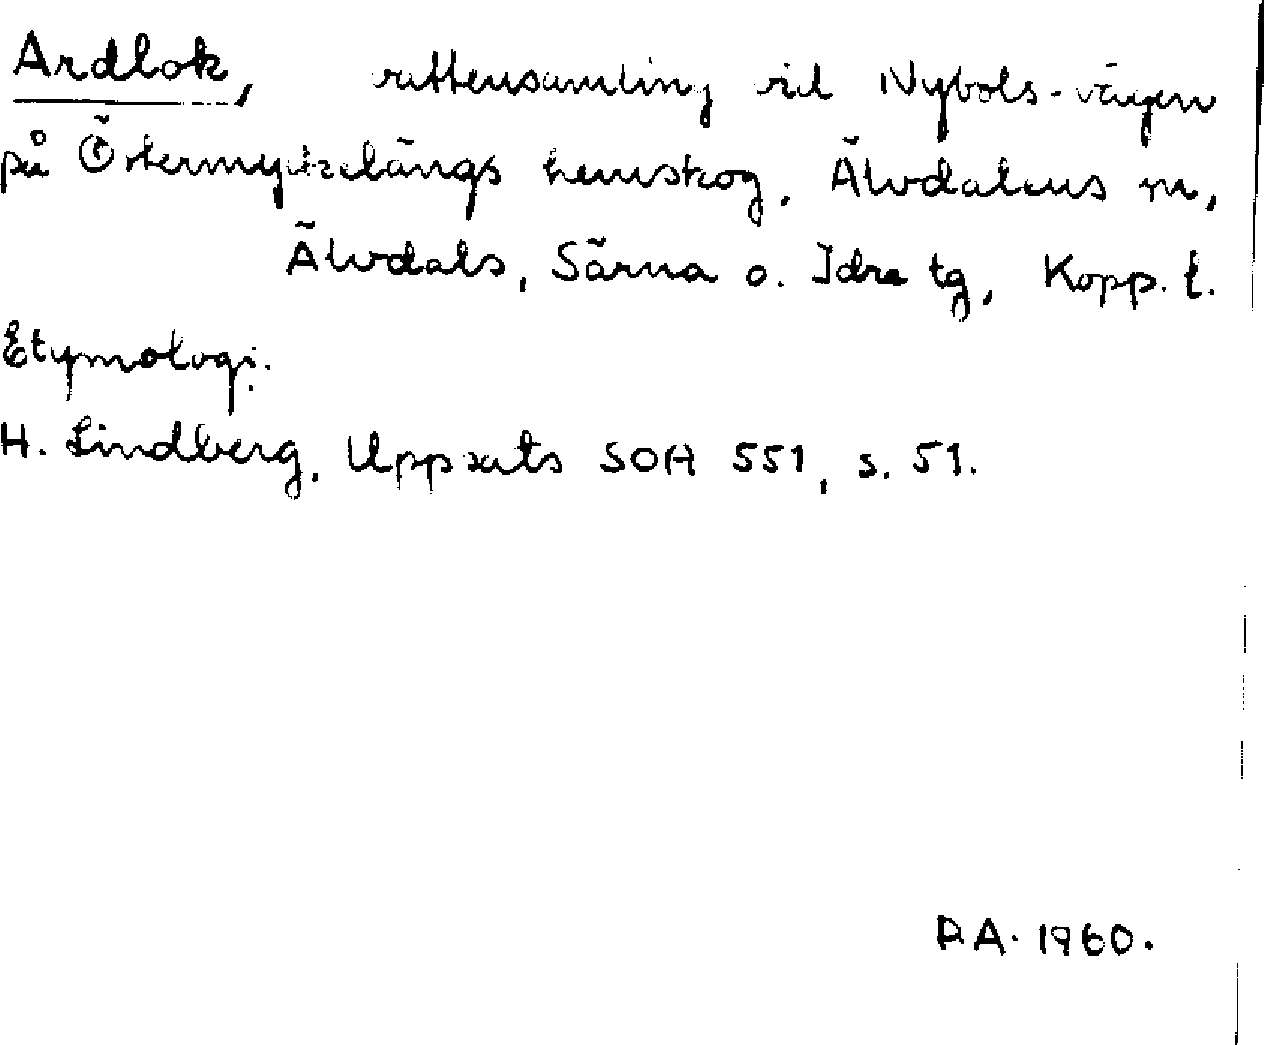 Ardlok, vattensamling vid Nybols-vägen
på Östermyckelängs hemskog, Älvdalens sn,
Älvdals, Särna o. Idre tg, Kopp. l.
Etymologi.
H. Lindberg, Uppsats SOA 551, s. 51.
P.A. 1960.